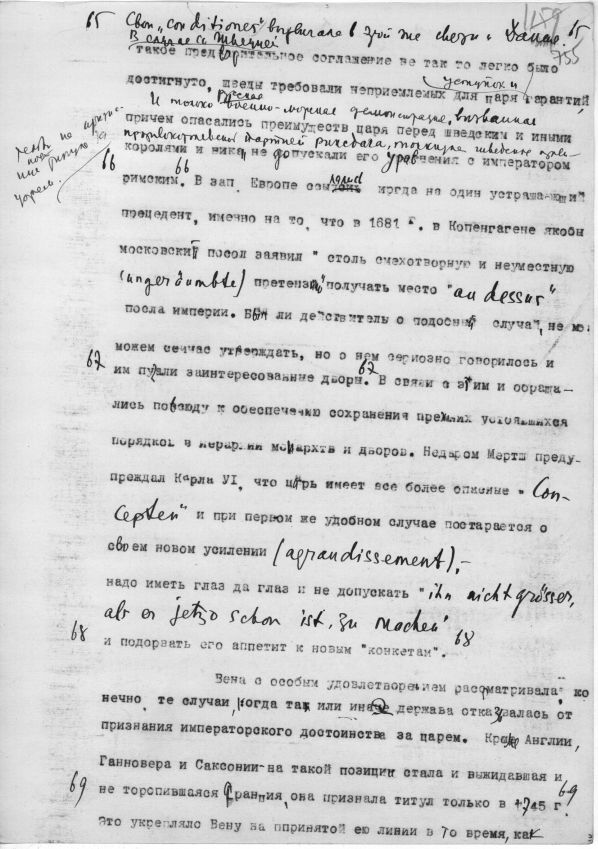 1159
755
65 Свои „conditiones" выдвигала в этой же связи и Дания. 65
В случае со Швецией
такое предварительное соглашение не так то легко было
достигнуто, шведы требовали неприемлемых для царя гарантий,
уступок и
И только русская военно-морская демонстрация, вызванная
причем опасались преимуществ царя перед шведским и иными
провокаторской партией риксдага,
королями и никак не допускали его уравнения с императором
66 римским. 66 В зап. Европе ссылались иногда на один устрашающий
прецедент, именно на то, что в 1681 г. в Копенгагене якобы
московский посол заявил " столь смехотворную и неуместную
(ungeräumbte) претензию" получать место "au dessus"
посла империи. Был ли действительно подобный случай, не мо
можем сейчас утверждать, но о нем серьозно говорилось и
67 им пугали заинтересованные дворы. 67 В связи с этим и обраща-
лись повсюду к обеспечению сохранения прежних устоявшихся
порядков в иерархии монархтв и дворов. Недаром Мертш преду-
преждал Карла УI, что царь имеет все более опасные " Con-
cepten" и при первом же удобном случае постарается о
своем новом усилении (agrandissement),-
надо иметь глаз да глаз и не допускать "ihn nicht grösser,
als er jetzo schon ist, zu machen"
68 и подорвать его аппетит к новым "конкетам". 68
Вена с особым удовлетворением рассматривала, ко
нечно, те случаи, когда та или иная держава отказывалась от
признания императорского достоинства за царем. Кроме Англии,
Ганновера и Саксонии на такой позиции стала и выжидавшая и
69 не торопившаяся Франция, она признала титул только в 1745 г. 69
Это укрепляло Вену на ппринятой ею линии в то время, как